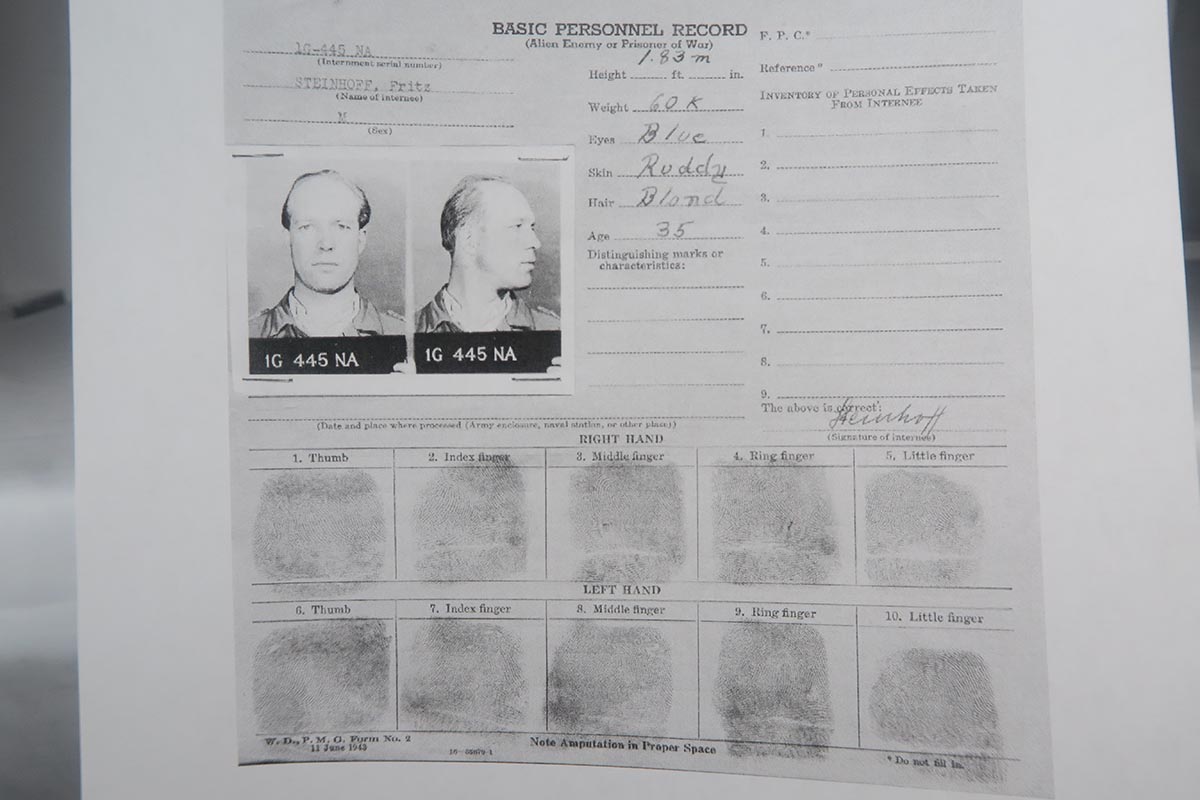 BASIC PERSONNEL RECORD
(Alien Enemy or Prisoner of War)
1G-445 NA
(Internment serial number)
STEINHOFF, Fritz
(Name of internee)
M
(Sex)
1.83 m
Height ft. in.
Weight 60 K
Eyes Blue
Skin Ruddy
Hair Blond
Age 35
Distinguishing marks or
characteristics:
F. P. C.*
Reference*
INVENTORY OF PERSONAL EFFECTS TAKEN
FROM INTERNEE
1.
2.
3.
4.
5.
6.
7.
8.
9.
The above is correct:
Steinhoff
(Signature of internee)
1G 445 NA
1G 445 NA
(Date and place where processed (Army enclosure, naval station, or other place))
RIGHT HAND
1. Thumb
2. Index finger
3. Middle finger
4. Ring finger
5. Little finger
LEFT HAND
6. Thumb
7. Index finger
8. Middle finger
9. Ring finger
10. Little finger
W. D., P. M. G. Form No. 2
11 June 1943
Note Amputation in Proper Space
* Do not fill in.